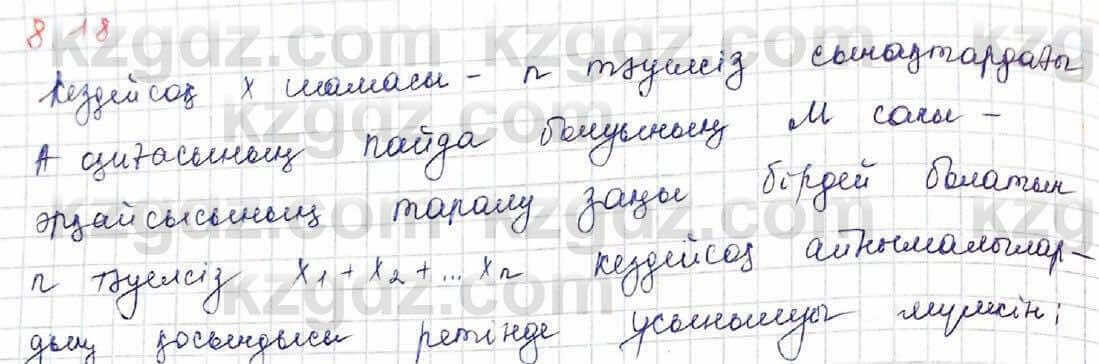 8 18
Кездейсоқ X шамасы - n тәуелсіз сынақтардағы
A оқиғасының пайда болуының M саны -
әрқайсысының таралу заңы бірдей болатын
n тәуелсіз x₁ + x₂ + ... xₙ кездейсоқ айнымалылар-
дың қосындысы ретінде ұсынылуы мүмкін;
kzgdz.com kzgdz.com
kzgdz.com
kzgdz.com kzgdz.com
kzgdz.com
kzgdz.com kzgdz.com